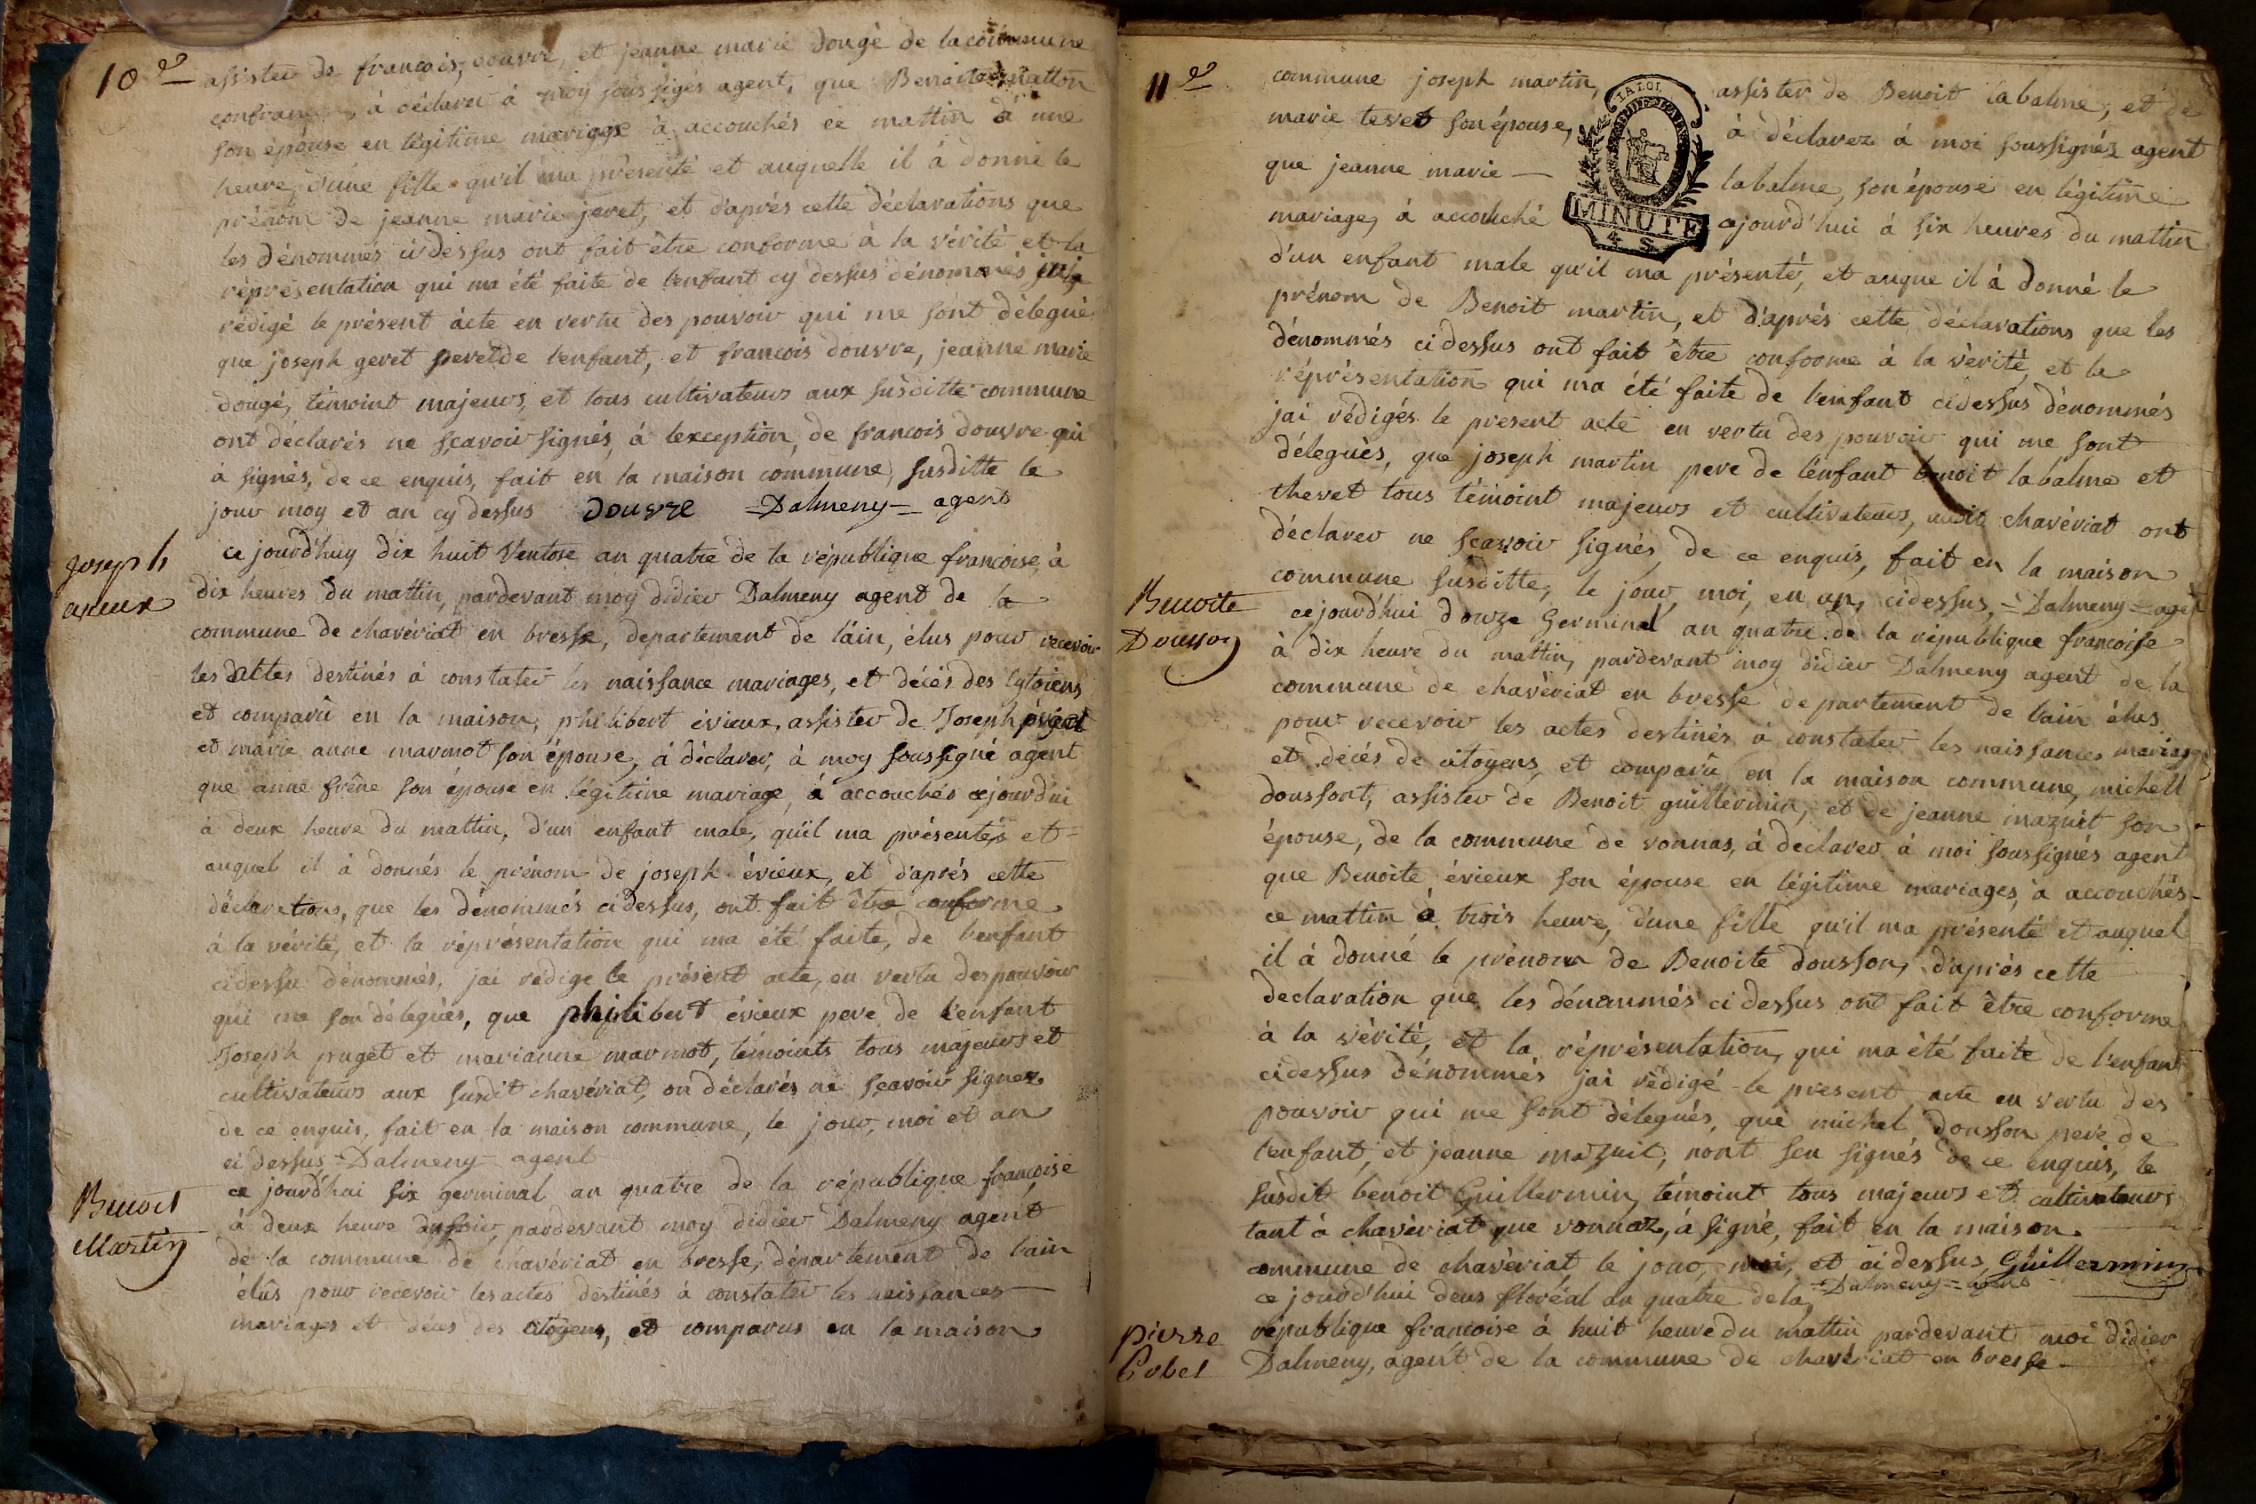 10e
assister de francois, douvre, et jeanne marie dougé de la commune
à déclarer à moy soussigés agent, que Benoite matton
son épouse en légitime mariage à accouchés ce mattin à une
heure, d'une fille qu'il ma présenté et auquelle il à donné le
prénom de jeanne marie jeret, et d'aprés cette déclarations que
les dénommés ci dessus ont fait être conforme à la vérité et la
réprésentation qui ma été faite de l'enfant cy dessus dénommés jai
rédigé le présent acte en vertu des pouvoir qui me sont délegué
que joseph geret pere de l'enfant, et francois douvre, jeanne marie
dougé, témoint majeurs, et tous cultivateurs aux susditte commune
ont déclarés ne sçavoir signés, à lexception, de francois douvre qui
à signés, de ce enquis, fait en la maison commune, susditte le
jour moy et an cy dessus Douvre =Dalmeny= agent
joseph
evieux
ce jourd'huy dix huit Ventose an quatre de la république francoise, à
dix heures du mattin, pardevant moy didier Dalmeny agent de la
commune de chavériat en bresse, departement de l'ain, élus pour recevoir
les actes destinés à constater les naissance mariages, et décés des Cytoiens
et comparu en la maison, philibert évieux, assister de Joseph puget
et marie anne marmot son épouse, à déclarer, à moy soussigné agent
que anne frêne son épouse en légitime mariage, à accouchés cejourdui
à deux heure du mattin, d'un enfant male, qu'il ma présentés et=
auquel il à donnés le prénom de joseph évieux, et d'aprés cette
déclarations, que les dénommés ci dessus, ont fait être conforme
à la vérité, et la réprésentation qui ma été faite, de l'enfant
cidessu dénommés, jai redige le présent acte, en vertu des pouvoir
qui me son délegués, que philibert évieux pere de l'enfant
Joseph puget et marianne marmot, témoints tous majeurs et
cultivateurs aux susdit chavériat, on déclarés ne sçavoir signer
de ce enquis, fait en la maison commune, le jour, moi et an
ci dessus =Dalmeny= agent
Benoit
Martin
ce jourd'hui six germinal an quatre de la république françoise
à deux heure du soir, pardevant moy didier Dalmeny agent
de la commune de chavériat en bresse, département de l'ain
élûs pour recevoir les actes destinés à constater les naissances
mariages et déces des citoyens, et comparus en la maison
11e
commune joseph martin, assister de Benoit labalme, et de
marie tevet son épouse, à déclarez à moi soussignéz agent
que jeanne marie — labalme, son épouse en légitime
mariage, à accouché cejourd'hui à six heures du mattin
d'un enfant male qu'il ma présenté, et auque il à donné le
prénom de Benoit martin, et d'aprés cette déclarations que les
dénommés ci dessus ont fait être conforme à la vérité, et la
réprésentation qui ma été faite de l'enfant cidessus dénommés
jai rédigés le present acte en vertu des pouvoir qui me sont
délegués, que joseph martin pere de l'enfant benoit labalme et
thevet tous témoint majeurs et cultivateurs, audit chavériat ont
déclarer ne sçavoir signés, de ce enquis, fait en la maison
commune susditte, le jour, moi, en an, cidessus, =Dalmeny= agent
Benoite
Dousson
cejourd'hui douze Germinal an quatre de la république francoise
à dix heure du mattin, pardevant moy didier Dalmeny agent de la
commune de chavériat en bresse departement de l'ain élus
pour recevoir les actes destinés à constater les naissances mariages
et décés de citoyens, et comparu en la maison commune, michell
doussont, assister de Benoit guillermin, et de jeanne mazuit son
épouse, de la commune de vonnas, à declarer à moi soussignés agent
que Benoite évieux son épouse en légitime mariages, à accouchés
ce mattin à trois heure, d'une fille qu'il ma présenté et auquel
il à donné le prénom de Benoite dousson, d'aprés cette
declaration que les dénommés ci dessus ont fait être conforme
à la vérité, et la réprésentation, qui ma été faite de l'enfant
cidessus dénommés jai rédigé le present acte en vertu des
pouvoir qui me sont délegués, que michel dousson pere de
l'enfant, et jeanne mazuit, nont seu signés de ce enquis, le
susdit benoit Guillermin, témoint tous majeurs et cultivateurs
tant à chavériat que vonnaz, à signé, fait en la maison
commune de chavériat, le jour, moi, et ci dessus, Guillermin
=Dalmeny= agent
pierre
Cobel
ce jourd'hui deus floréal an quatre dela
république francoise à huit heure du mattin pardevant moi didier
Dalmeny, agent de la commune de chavériat en bresse
LA LOI
MINUTE
4 S